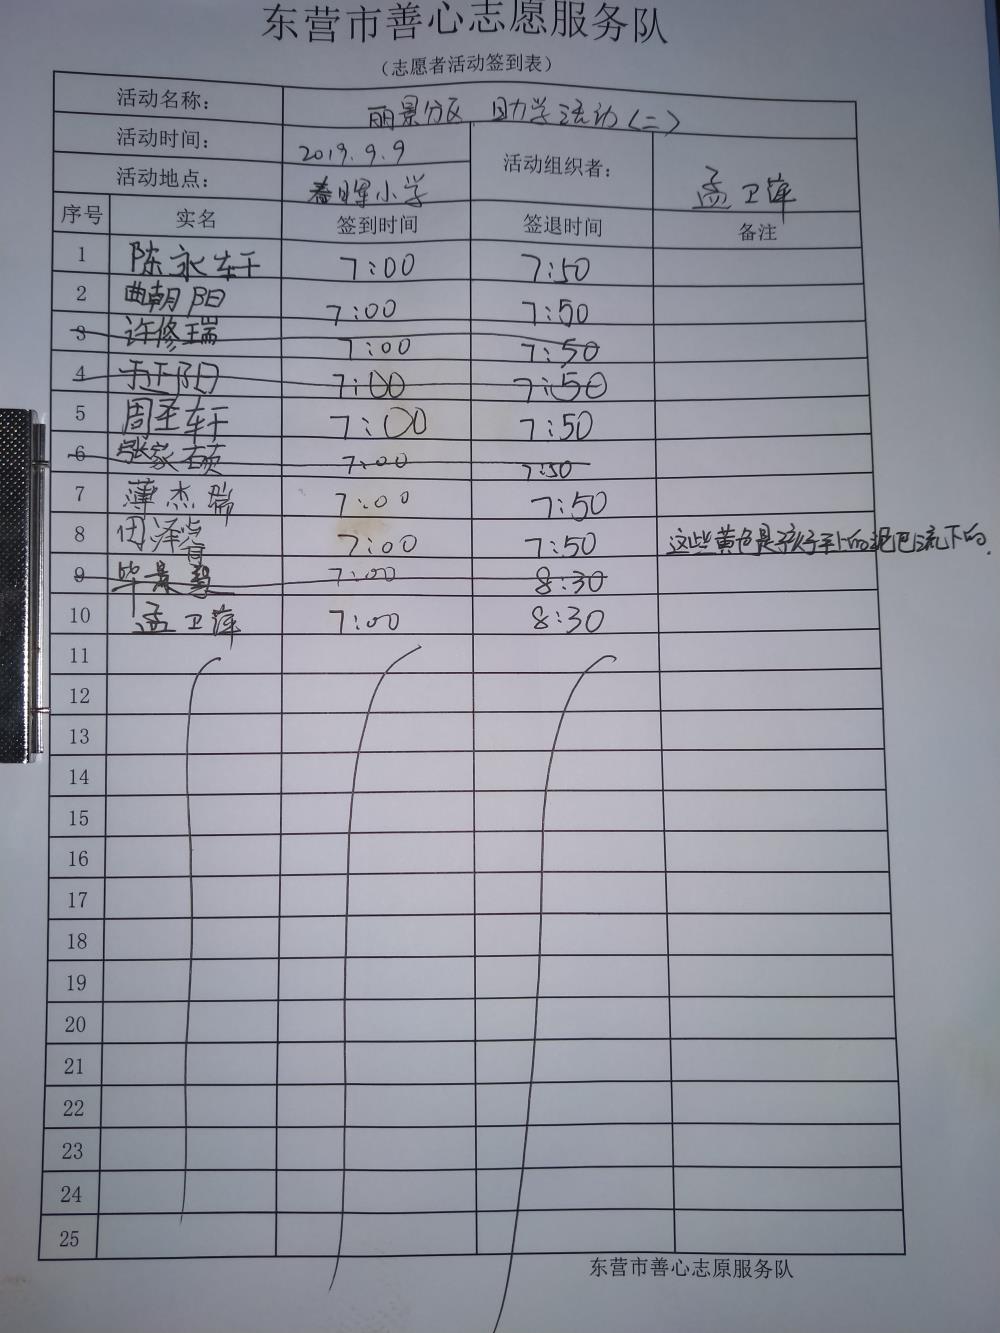 东营市善心志愿服务队
（志愿者活动签到表）
活动名称： 丽景分区 助学活动（二）
活动时间： 2019.9.9 活动组织者： 孟卫萍
活动地点： 春晖小学
序号 实名 签到时间 签退时间 备注
1 陈永轩 7:00 7:50
2 曲朝阳 7:00 7:50
3 许修瑞 7:00 7:50
4 于廷阳 7:00 7:50
5 周圣轩 7:00 7:50
6 张家硕 7:00 7:50
7 薄杰瑞 7:00 7:50
8 田泽 7:00 7:50 这些黄色是孩子手上的泥巴流下的.
9 毕景 7:00 8:30
10 孟卫萍 7:00 8:30
11
12
13
14
15
16
17
18
19
20
21
22
23
24
25
东营市善心志原服务队